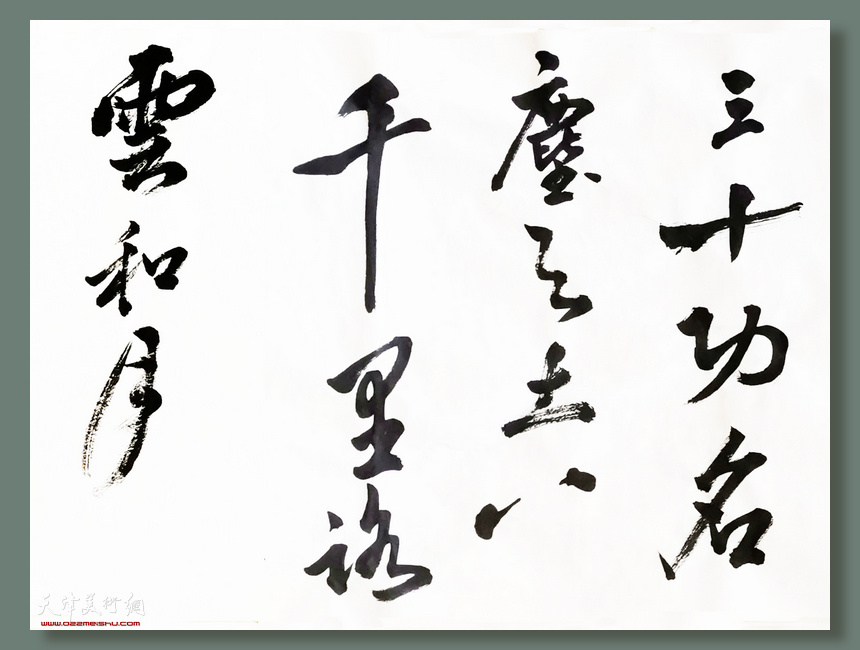 三十功名
塵与土八
千里路
雲和月
天津美術網
www.022meishu.com